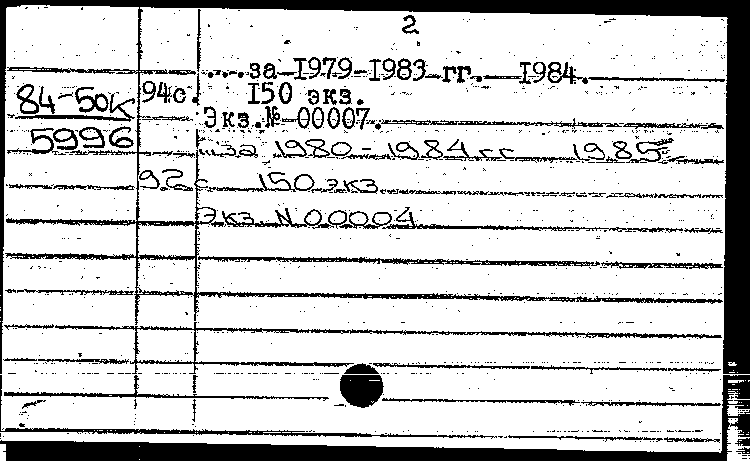 2
....за 1979-1983 гг. 1984.
84-50К 94с. 150 экз.
Экз.№ 00007.
5996
...за 1980-1984 гг 1985
92 с 150 экз
Экз. N 00004